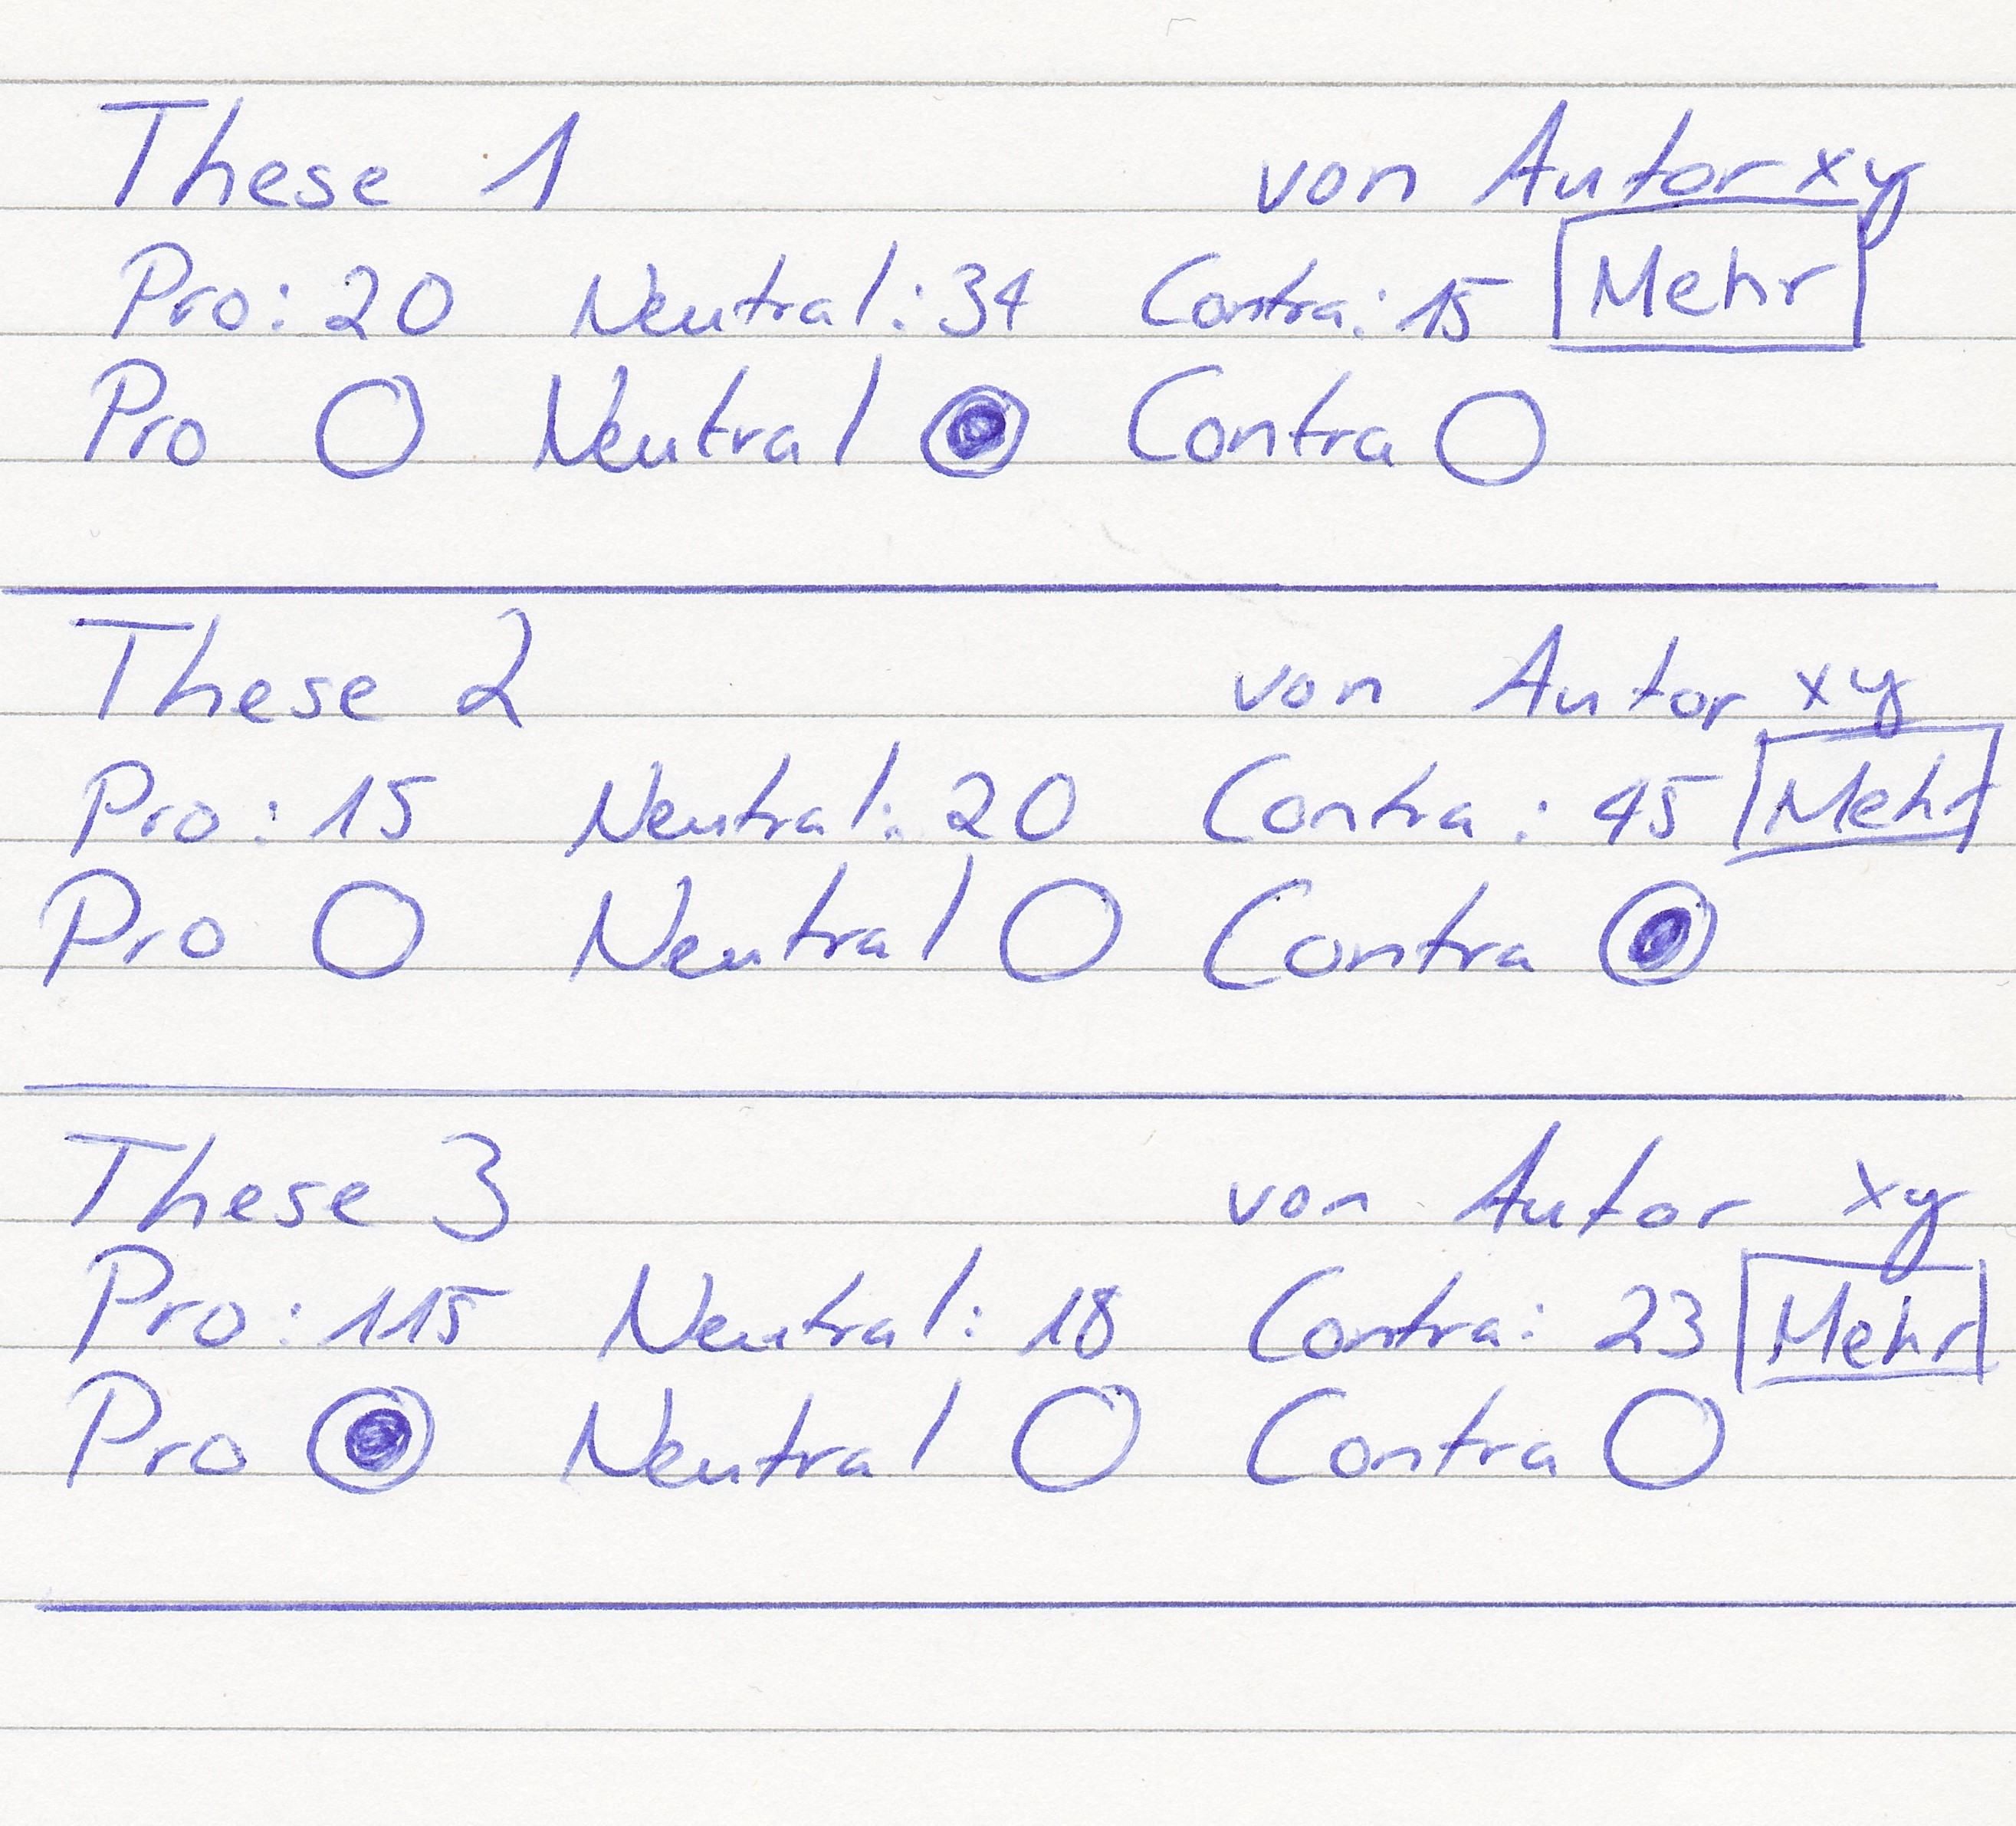 These 1 von Autor xy
Pro: 20 Neutral: 34 Contra: 15 Mehr
Pro Neutral Contra
These 2 von Autor xy
Pro: 15 Neutral: 20 Contra: 45 Mehr
Pro Neutral Contra
These 3 von Autor xy
Pro: 115 Neutral: 18 Contra: 23 Mehr
Pro Neutral Contra